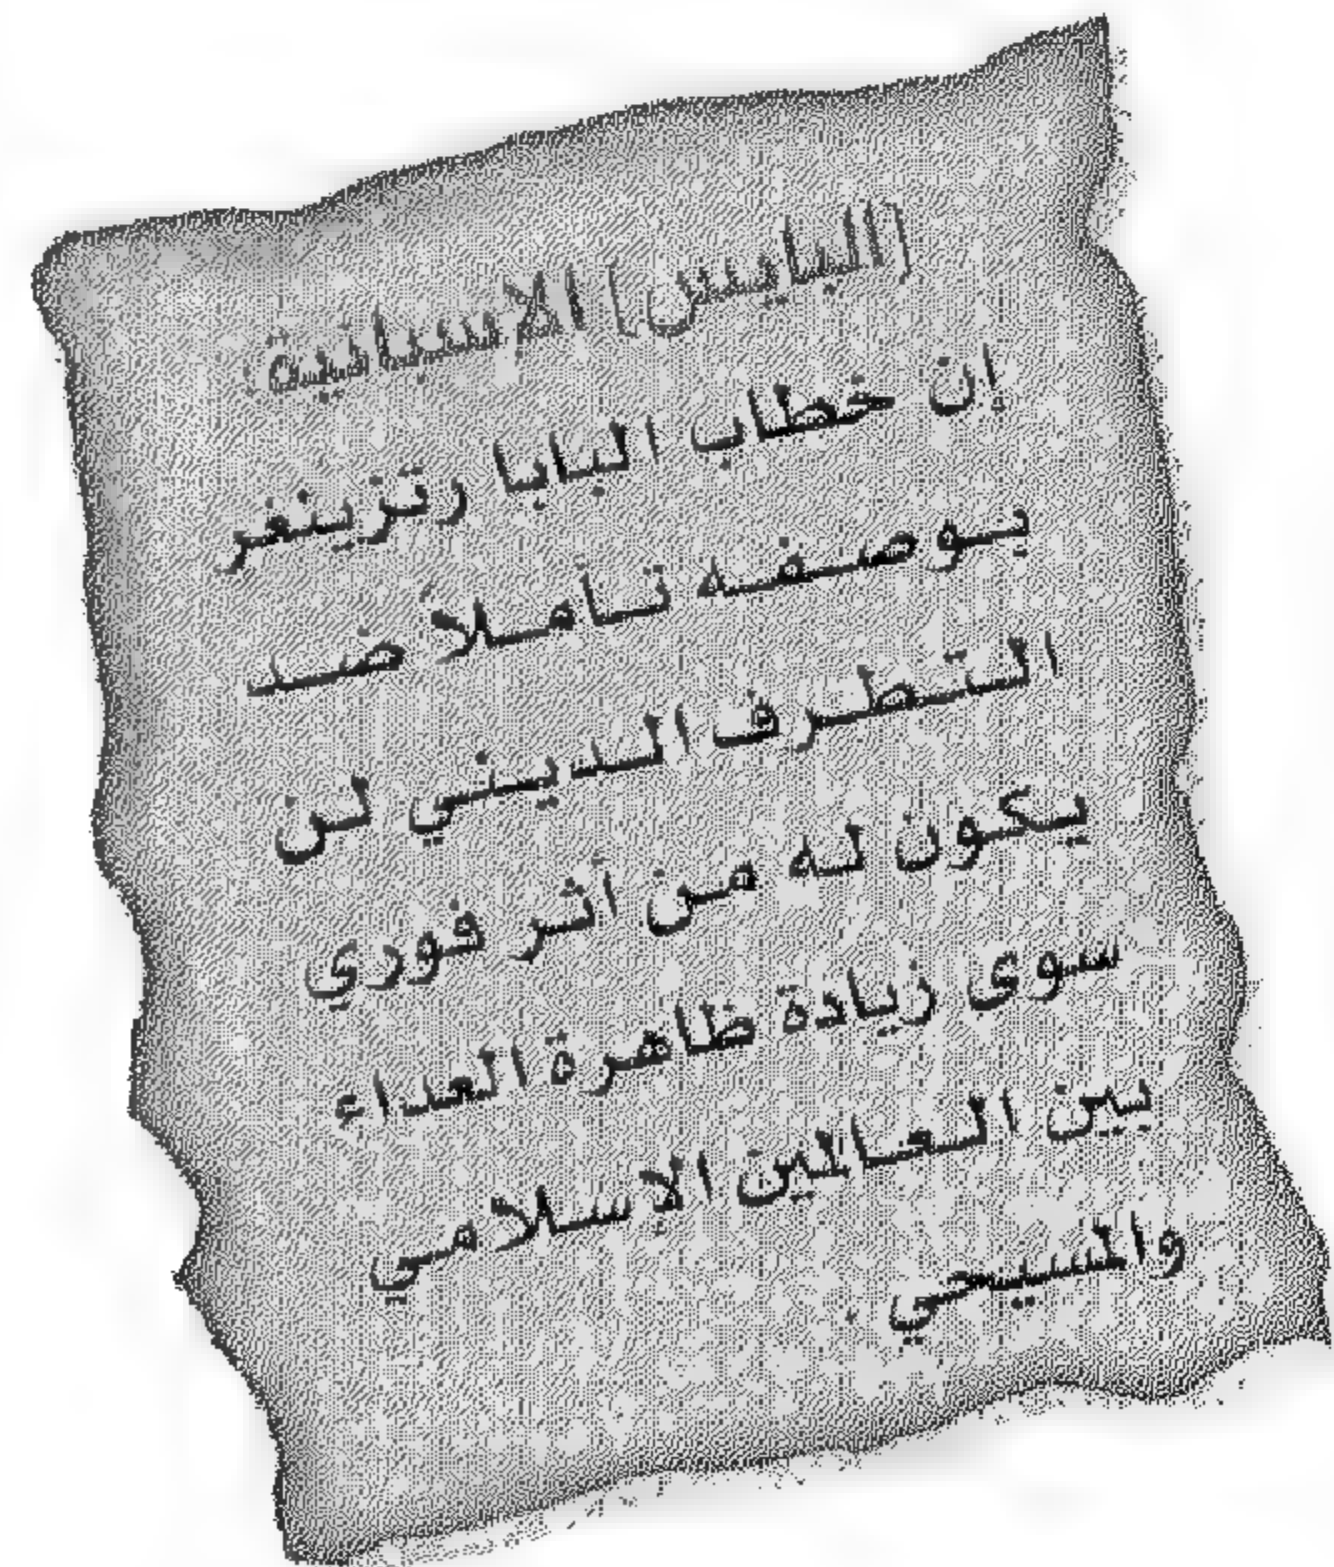 (البايس) الإسبانية:
إن خطاب البابا رتزينغر
بوصفه تأملاً ضد
التطرف الديني لن
يكون له من أثر فوري
سوى زيادة ظاهرة العداء
بين العالمين الإسلامي
والمسيحي .